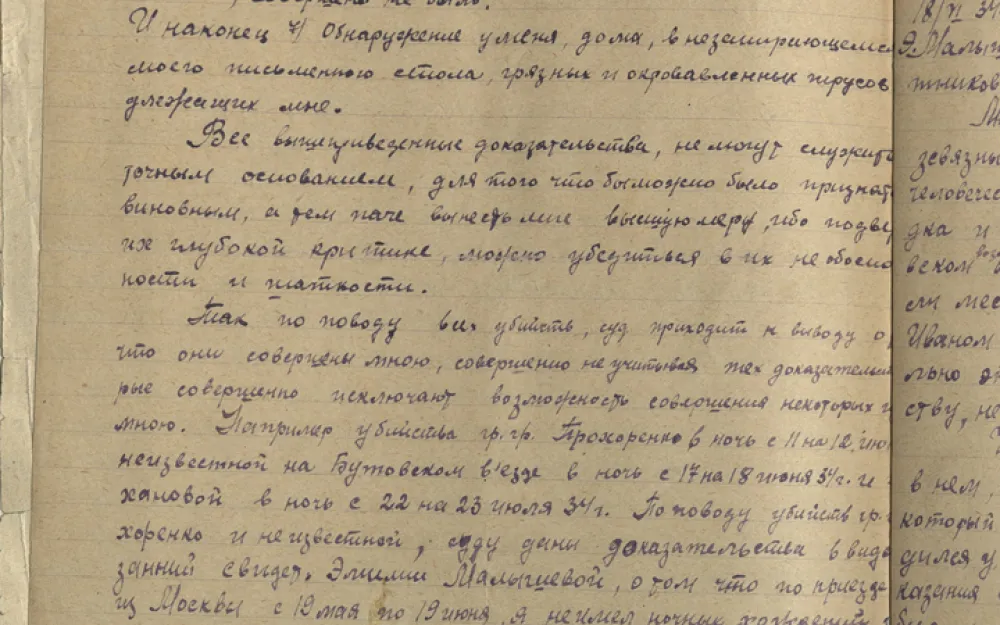 , совершено не было.
И наконец 7/ Обнаружение у меня, дома, в незапирающемся
моего письменного стола, грязных и окровавленных трусов
длежащих мне.
Все вышеприведенные доказательства, не могут служить
точным основанием, для того что бы можно было признат
виновным, а тем паче вынесть мне высшую меру, ибо подвер
их глубокой критике, можно убедиться в их не обосно
ности и шаткости.
Так по поводу всех убийств, суд приходит к выводу о
что они совершены мною, совершенно не учитывая тех доказательст
рые совершенно исключают возможность совершения некоторых и
мною. Например убийства гр.гр. Прохоренко в ночь с 11 на 12 июн
неизвестной на Бутовском в'езде в ночь с 17 на 18 июня 34 г. и
хановой в ночь с 22 на 23 июля 34 г. По поводу убийств гр.
хоренко и неизвестной, суду даны доказательства в виде
заний свидет. Эмилии Малышевой, о том что по приезде
из Москвы с 19 мая по 19 июня, я не имел ночных хождений
18/VI 34
Э. Малыш
тников
зевязны
человечес
дка и
вском
си мес
Иваном
льно
ству, не
в нем,
который
дился у
казания